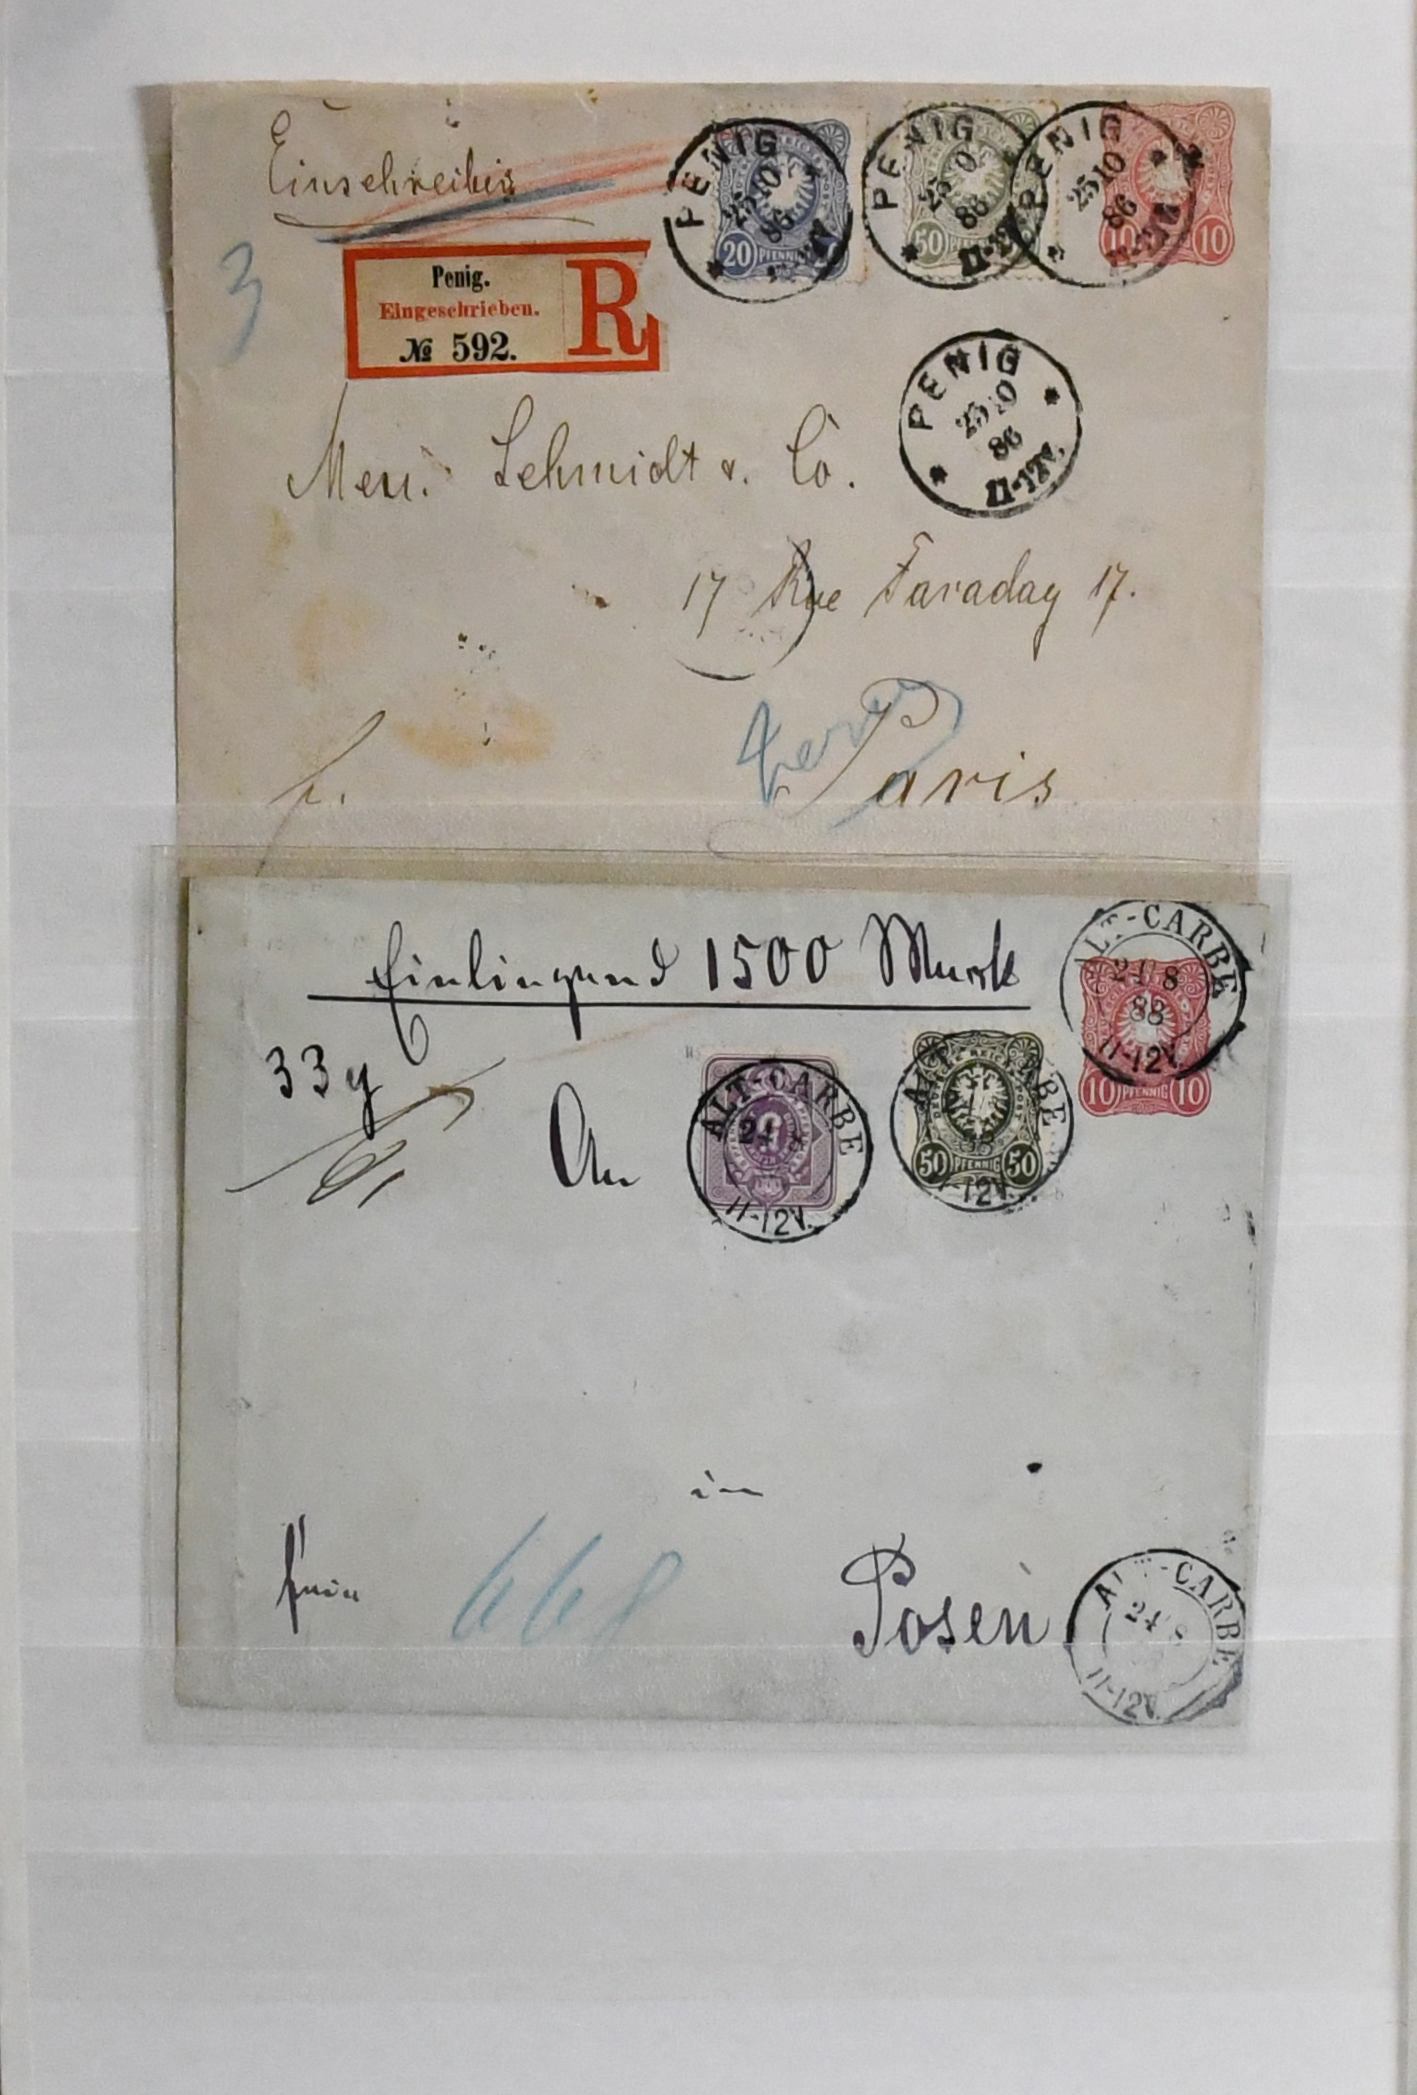 Einschreiben
PENIG 25 10 86
20 PFENNIG
PENIG 25 10 86 11-12V.
50 PFENNIG
PENIG 25 10 86 11-12V.
10 10
3
Penig.
Eingeschrieben.
№ 592.
R
PENIG
25 10
86
11-12V.
Schmidt & Co.
17 Rue Faraday 17.
Paris
1500 Mark
ALT-CARBE
24 8
88
11-12V.
10 PFENNIG 10
33 g
An
ALT-CARBE
11-12V.
ALT-CARBE
DEUTSCHE REICHSPOST
50 PFENNIG 50
11-12V.
in
Posen
668
ALT-CARBE
24 8
11-12V.